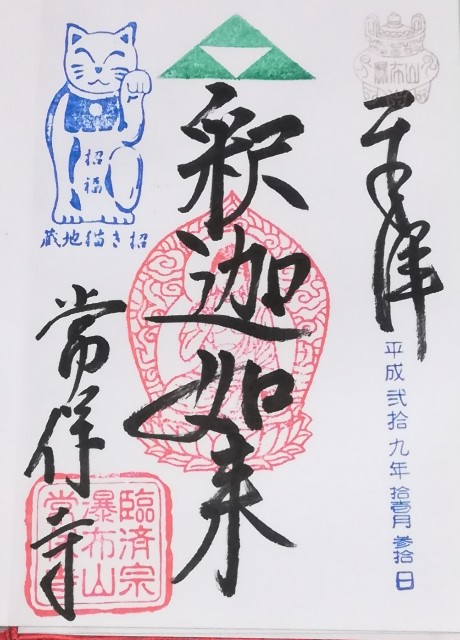 瀑布山
奉拝
平成弐拾九年拾壹月参拾日
釈迦如来
招福
招き猫地蔵
常保寺
臨済宗
瀑布山
常保寺